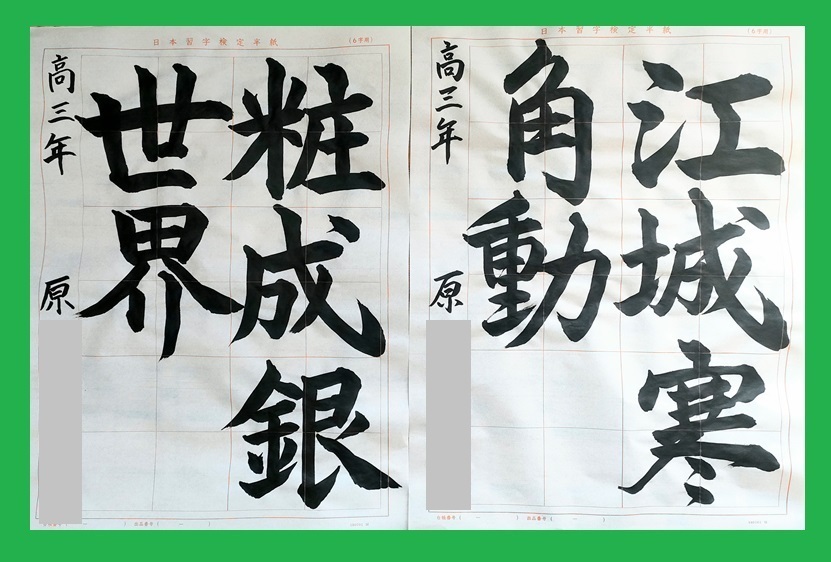 日本習字検定半紙
(6字用)
江城寒
角動
高三年
原
日本習字検定半紙
(6字用)
粧成銀
世界
高三年
原